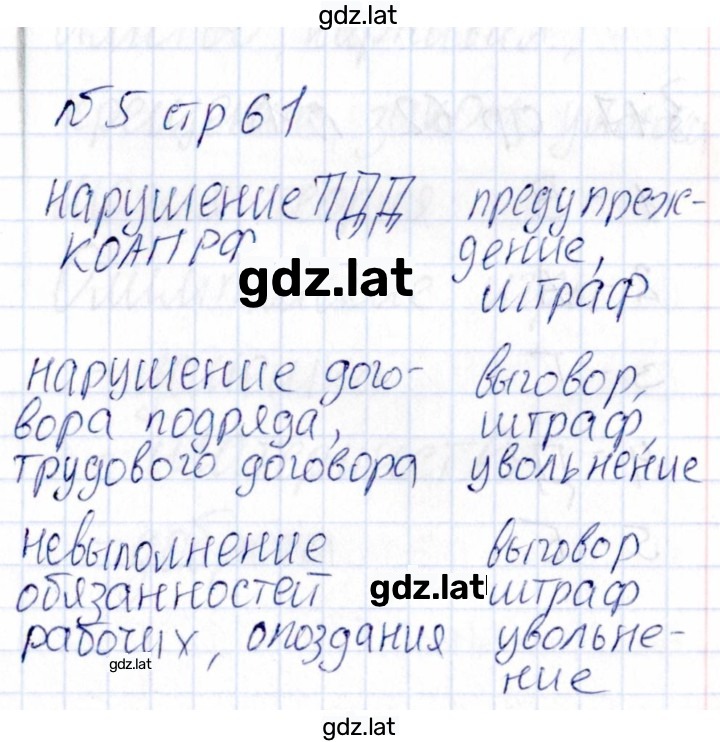 gdz.lat
№5 стр 61
нарушение ПДД предупреж-
КОАП РФ дение,
gdz.lat
штраф
нарушение дого- выговор,
вора подряда, штраф,
трудового договора увольнение
невыполнение выговор
обязанностей gdz.lat штраф
рабочих, опоздания увольне-
gdz.lat
ние
gdz.lat